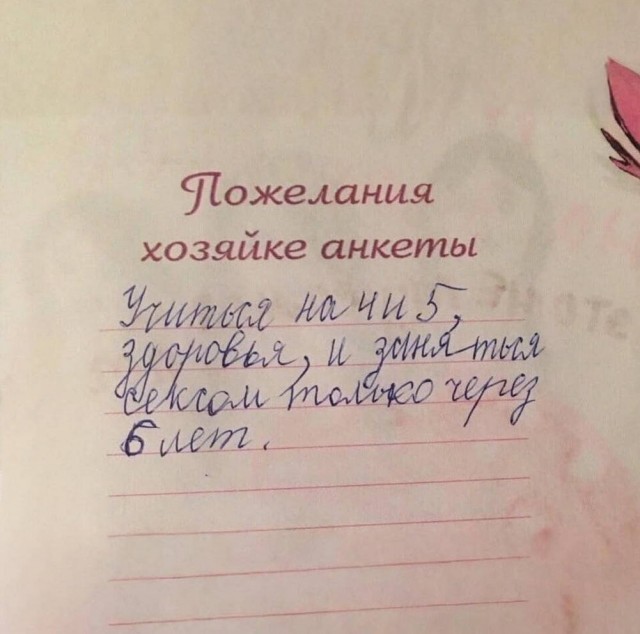 Пожелания
хозяйке анкеты
Учиться на 4 и 5,
здоровья, и заняться
сексом только через
6 лет.